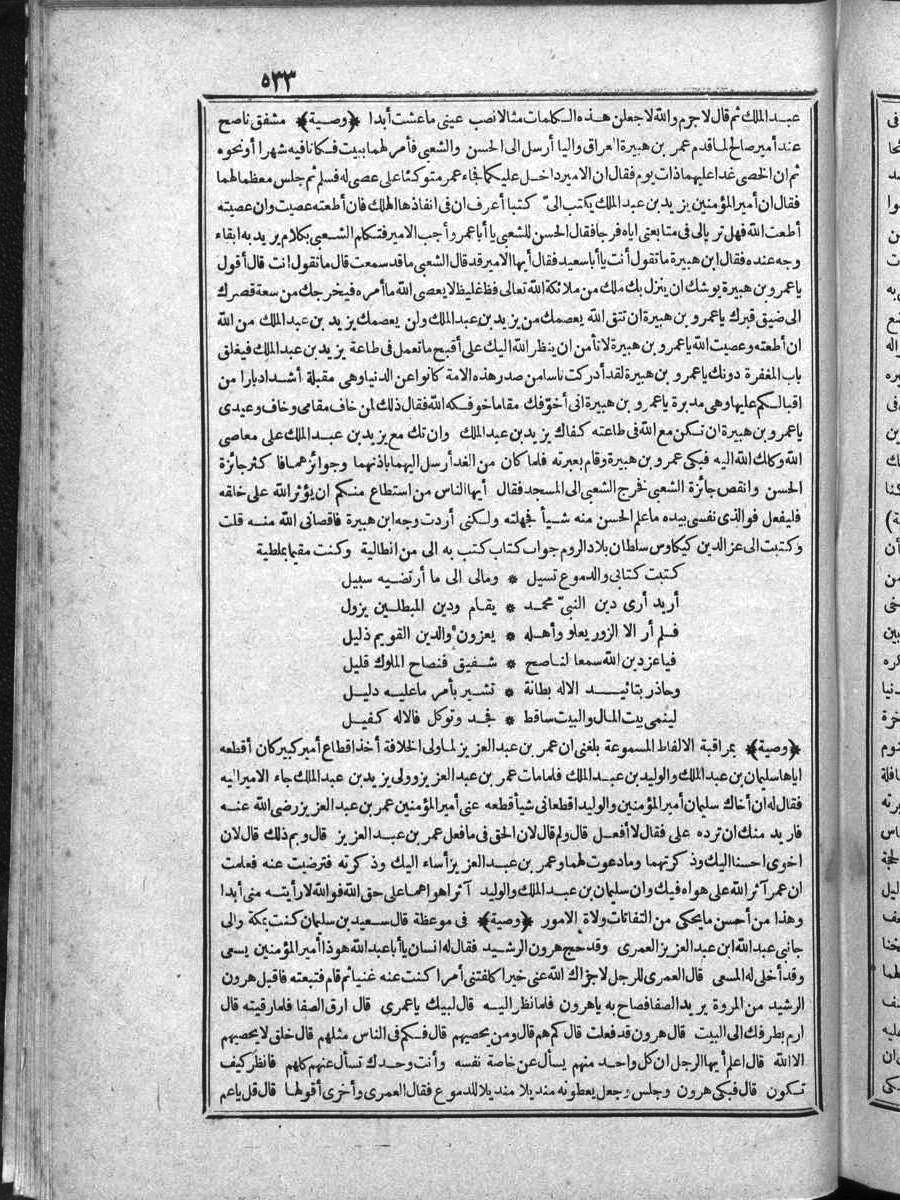 ٥٣٣
عبد الملك ثم قال لا جرم والله لاجعلن هذه الكلمات مثالا نصب عيني ما عشت أبدا ﴿وصية﴾ مشفق ناصح
عند أمير صالح لما قدم عمر بن هبيرة العراق واليا أرسل الى الحسن والشعبي فأمر لهما ببيت فكانا فيه شهرا أو نحوه
ثم ان الخصى غدا عليهما ذات يوم فقال ان الامير داخل عليكما فجاء عمر متوكئا على عصى له فسلم ثم جلس معظما لهما
فقال ان أمير المؤمنين يزيد بن عبد الملك يكتب الىّ كتبا أعرف ان فى انفاذها الهلك فان أطعته عصيت وان عصيته
أطعت الله فهل تريا لى فى متابعتى اياه فرجا فقال الحسن للشعبى يا أبا عمرو أجب الامير فتكلم الشعبى بكلام يريد به ابقاء
وجه عنده فقال ابن هبيرة ما تقول أنت يا أبا سعيد فقال أيها الامير قد قال الشعبى ما قد سمعت قال ما تقول انت قال أقول
يا عمرو بن هبيرة يوشك ان ينزل بك ملك من ملائكة الله تعالى فظ غليظ لا يعصى الله ما أمره فيخرجك من سعة قصرك
الى ضيق قبرك يا عمرو بن هبيرة ان تتق الله يعصمك من يزيد بن عبد الملك ولن يعصمك يزيد بن عبد الملك من الله
ان أطعته وعصيت الله يا عمرو بن هبيرة لا تأمن ان ينظر الله اليك على أقبح ما تعمل فى طاعة يزيد بن عبد الملك فيغلق
باب المغفرة دونك يا عمرو بن هبيرة لقد أدركت ناسا من صدر هذه الامة كانوا عن الدنيا وهى مقبلة أشد ادبارا من
اقبالكم عليها وهى مدبرة يا عمرو بن هبيرة انى أخوّفك مقاما خوفكه الله فقال ذلك لمن خاف مقامى وخاف وعيدى
يا عمرو بن هبيرة ان تكن مع الله فى طاعته كفاك يزيد بن عبد الملك وان تك مع يزيد بن عبد الملك على معاصى
الله وكلك الله اليه فبكى عمرو بن هبيرة وقام بعبرته فلما كان من الغد أرسل اليهما باذنهما وجوائزهما فا كثر جائزة
الحسن وانقص جائزة الشعبى فخرج الشعبى الى المسجد فقال أيها الناس من استطاع منكم ان يؤثر الله على خلقه
فليفعل فوالذى نفسى بيده ما علم الحسن منه شيأ فجهلته ولكنى أردت وجه ابن هبيرة فاقصانى الله منه قلت
وكتبت الى عز الدين كيكاوس سلطان بلاد الروم جواب كتاب كتب به الى من انطالية وكنت مقيما بملطية
كتبت كتابى والدموع تسيل * ومالى الى ما أرتضيه سبيل
أريد أرى دين النبىّ محمد * يقام ودين المبطلين يزول
فلم أر الا الزور يعلو وأهله * يعزون والدين القويم ذليل
فيا عز دين الله سمعا لناصح * شفيق فنصاح الملوك قليل
وحاذر بتائيد الاله بطانة * تشير بأمر ما عليه دليل
لينمى بيت المال والبيت ساقط * فجد وتوكل فالاله كفيل
﴿وصية﴾ بمراقبة الالفاظ المسموعة بلغنى ان عمر بن عبد العزيز لما ولى الخلافة أخذ اقطاع أمير كبير كان أقطعه
اياها سليمان بن عبد الملك والوليد بن عبد الملك فلما مات عمر بن عبد العزيز وولى يزيد بن عبد الملك جاء الامير اليه
فقال له ان أخاك سليمان أمير المؤمنين والوليد اقطعانى شيأ قطعه عنى أمير المؤمنين عمر بن عبد العزيز رضى الله عنه
فاريد منك ان ترده على فقال لا أفعل قال ولم قال لان الحق فى ما فعل عمر بن عبد العزيز قال وبم ذلك قال لان
اخوى احسنا اليك وذكرتهما وما دعوت لهما وعمر بن عبد العزيز أساء اليك وذكرته فترضيت عنه فعلمت
ان عمر آثر الله على هواه فيك وان سليمان بن عبد الملك والوليد آثرا هواهما على حق الله فوالله لا رأيته منى أبدا
وهذا من أحسن ما يحكى من التفاتات ولاة الامور ﴿وصية﴾ فى موعظة قال سعيد بن سليمان كنت بمكة والى
جانبى عبد الله ابن عبد العزيز العمرى وقد حج هرون الرشيد فقال له انسان يا أبا عبد الله هوذا أمير المؤمنين يسعى
وقد أخلى له المسعى قال العمرى للرجل لا جزاك الله عنى خيرا كلفتنى أمرا كنت عنه غنيا ثم قام فتبعته فاقبل هرون
الرشيد من المروة يريد الصفا فصاح به يا هرون فلما نظر اليه قال لبيك يا عمرى قال ارق الصفا فلما رقيته قال
ارم بطرفك الى البيت قال هرون قد فعلت قال كم هم قال ومن يحصيهم قال فكم فى الناس مثلهم قال خلق لا يحصيهم
الا الله قال اعلم أيها الرجل ان كل واحد منهم يسأل عن خاصة نفسه وأنت وحدك تسأل عنهم كلهم فانظر كيف
تكون قال فبكى هرون وجلس وجعل يعطونه منديلا منديلا للدموع فقال العمرى وأخرى أقولها قال قل يا عم